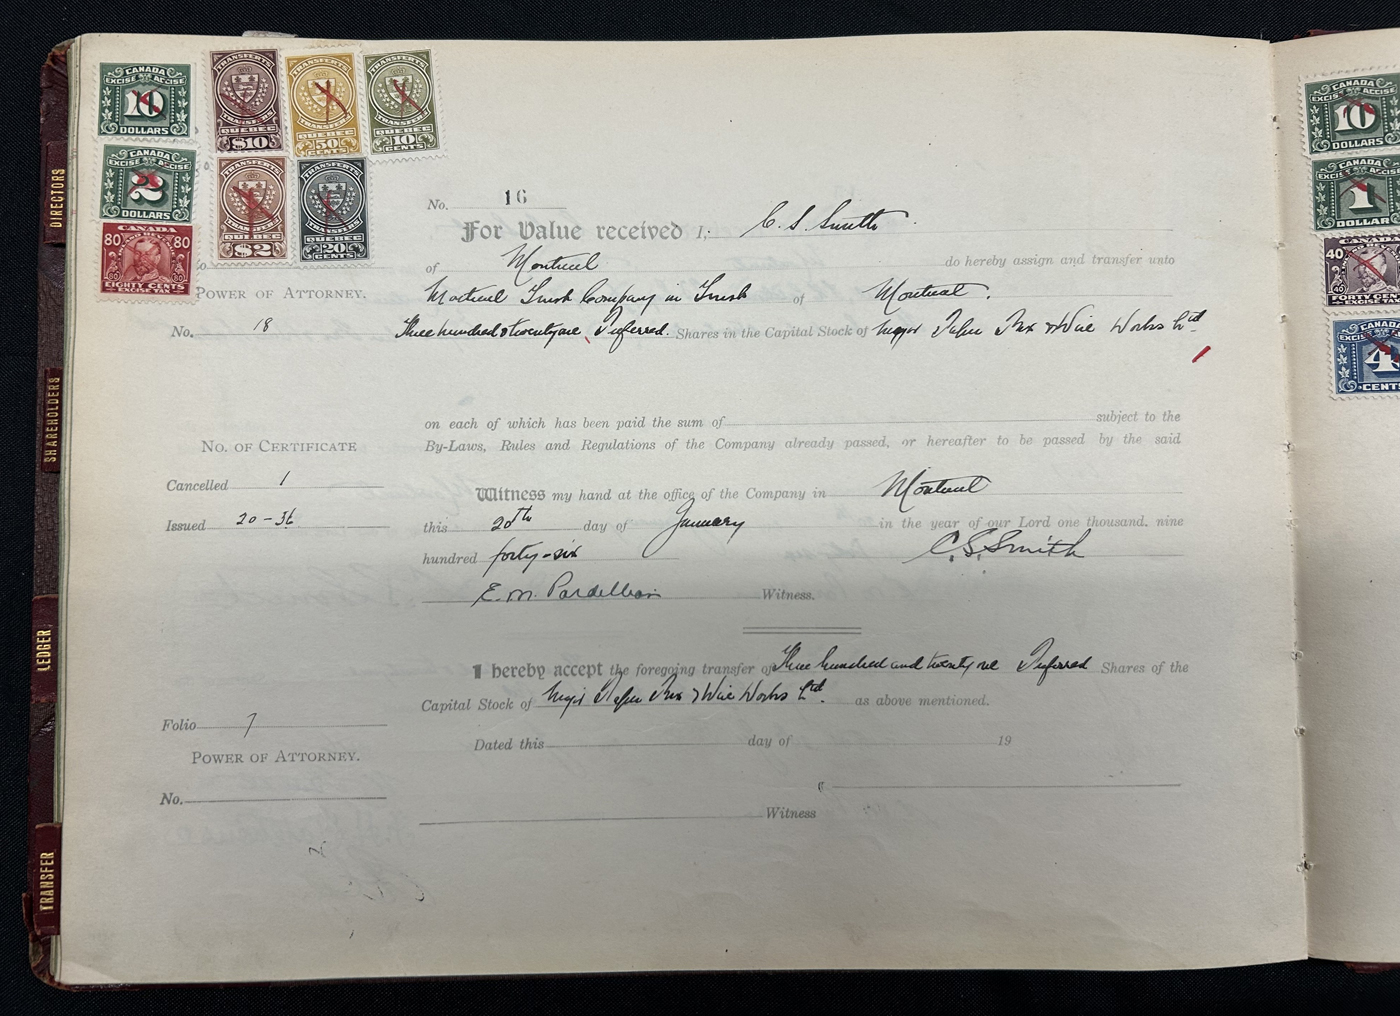 CANADA
EXCISE ACCISE
10
DOLLARS
TRANSFERTS
TRANSFERS
QUEBEC
$10
TRANSFERTS
TRANSFERS
QUEBEC
50
CENTS
TRANSFERTS
TRANSFERS
QUEBEC
10
CENTS
CANADA
EXCISE ACCISE
2
DOLLARS
TRANSFERTS
TRANSFERS
QUEBEC
$2
TRANSFERTS
TRANSFERS
QUEBEC
20
CENTS
CANADA
80 80
EIGHTY CENTS
EXCISE TAX
DIRECTORS
SHAREHOLDERS
LEDGER
TRANSFER
No. 16
For Value received I, C. S. Smith
of Montreal do hereby assign and transfer unto
POWER OF ATTORNEY. Montreal Trust Company in Trust of Montreal.
No. 18 Three hundred & twenty Preferred. Shares in the Capital Stock of Major Paper Box & Wire Works Ltd.
on each of which has been paid the sum of subject to the
NO. OF CERTIFICATE By-Laws, Rules and Regulations of the Company already passed, or hereafter to be passed by the said
Cancelled 1 Witness my hand at the office of the Company in Montreal
Issued 20-36 this 20th day of January in the year of our Lord one thousand, nine
hundred forty-six C. S. Smith
E. M. Witness.
I hereby accept the foregoing transfer of Three hundred and twenty Preferred Shares of the
Capital Stock of Major Paper Box & Wire Works Ltd. as above mentioned.
Folio 7
Dated this day of 19
POWER OF ATTORNEY.
No.
Witness
CANADA
10
DOLLARS
CANADA
1
DOLLAR
CANADA
40
FORTY CEN
EXCISE TAX
CANADA
4
CENTS